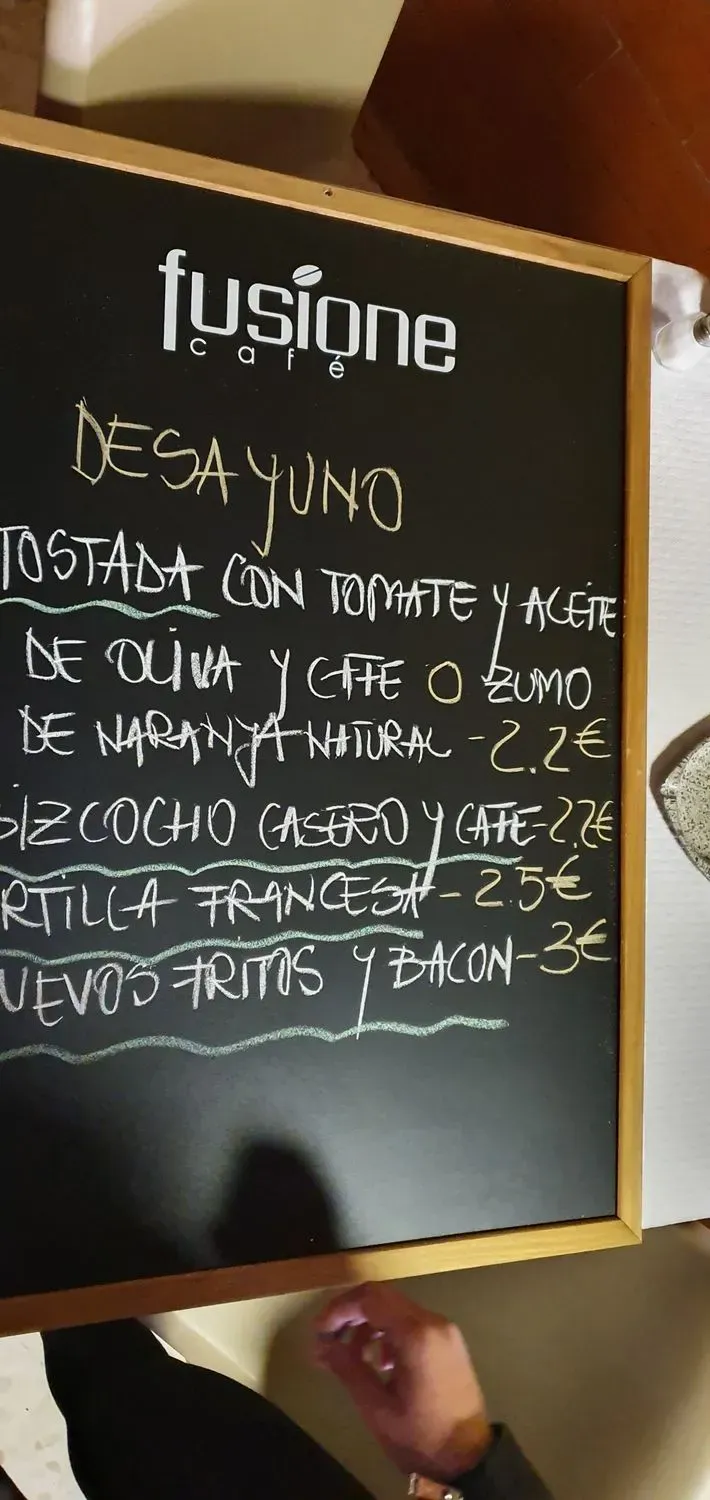 fusione
café
DESAYUNO
TOSTADA CON TOMATE Y ACEITE
DE OLIVA Y CAFE O ZUMO
DE NARANJA NATURAL -2.2€
BIZCOCHO CASERO Y CAFE-2.2€
RTILLA FRANCESA-2.5€
UEVOS FRITOS Y BACON-3€